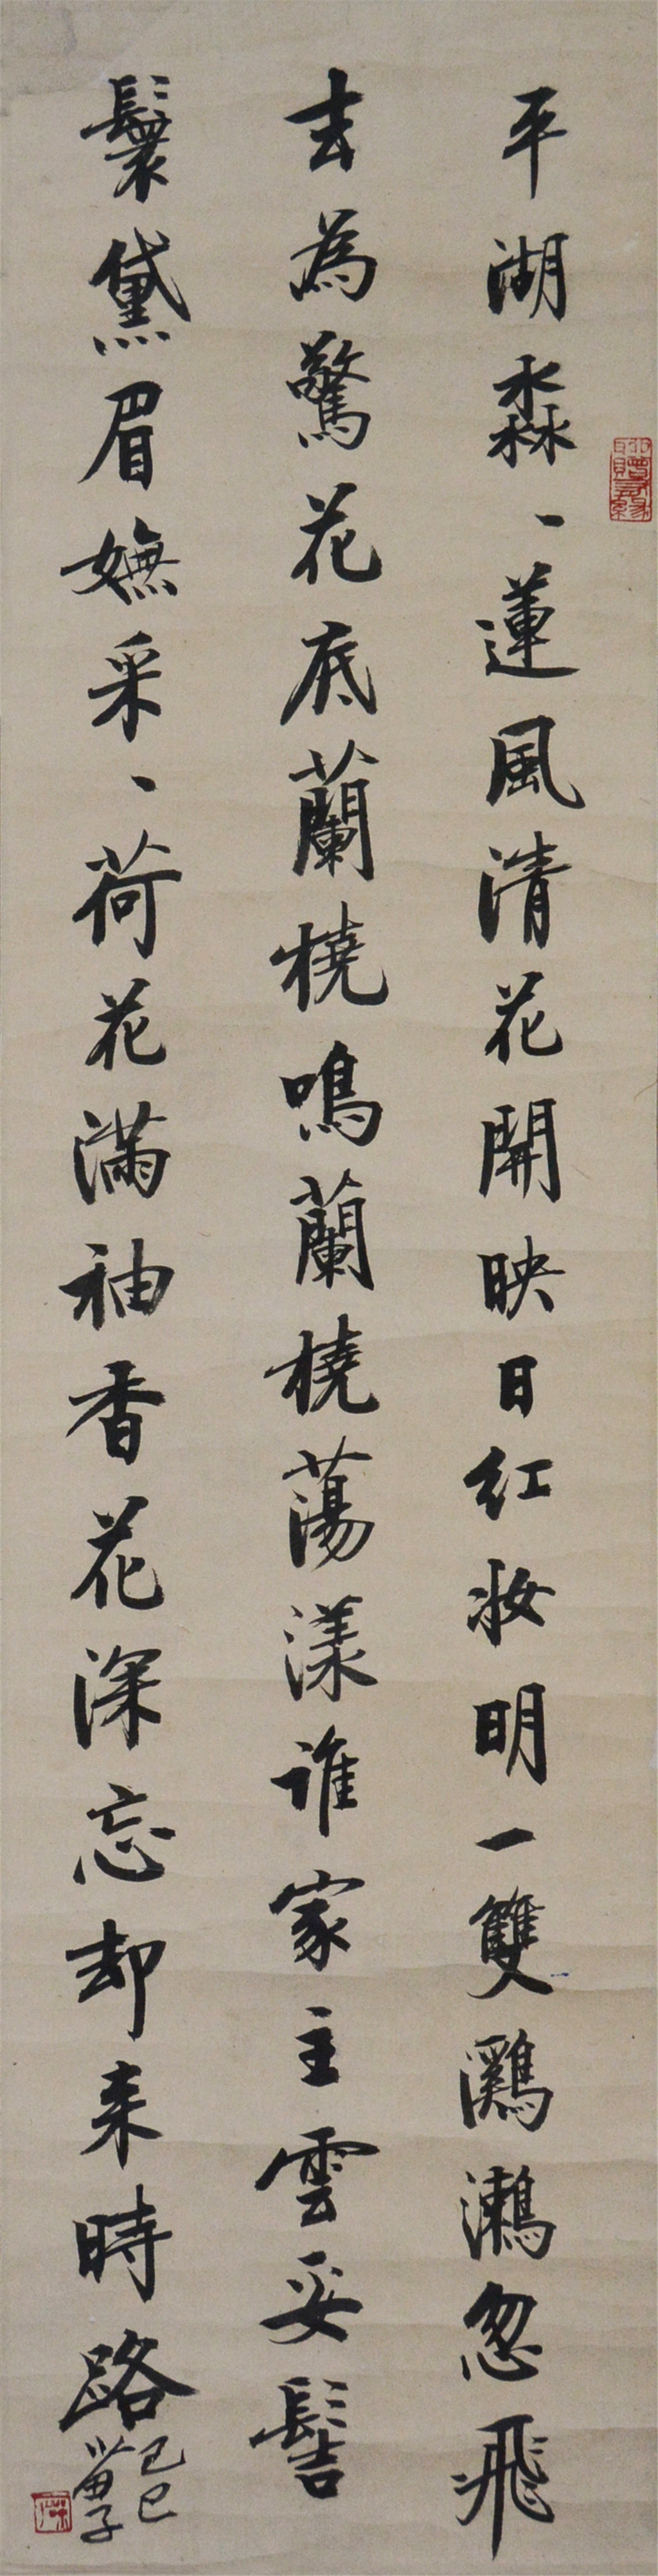 平湖淼、蓮風清花開映日红妝明一雙鸂鶒忽飛
去為驚花底蘭橈鳴蘭橈蕩漾谁家主雲妥髻
鬟黛眉嫵采、荷花滿袖香花深忘却来時路
己巳
苗子